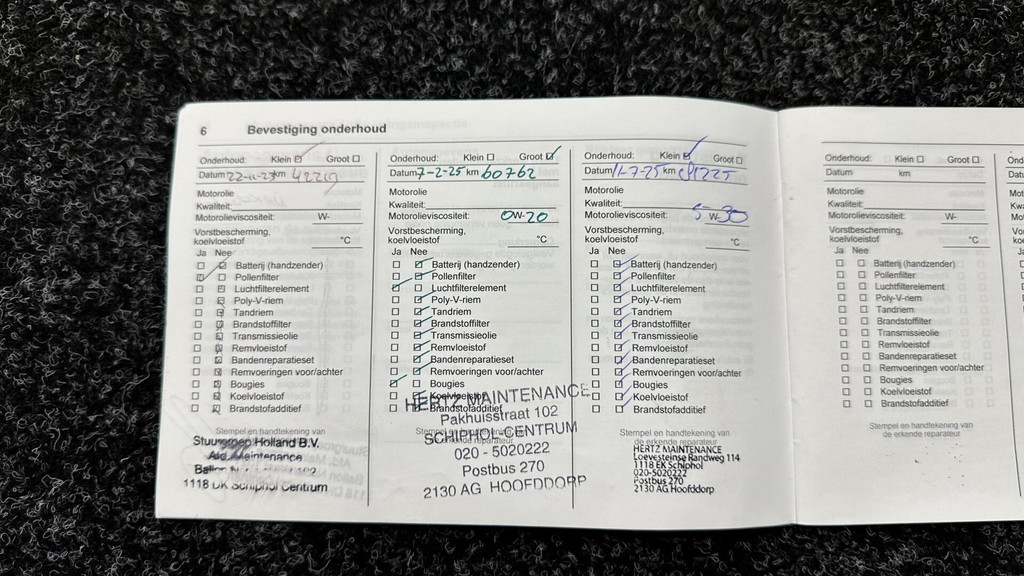 6 Bevestiging onderhoud
Onderhoud: Klein Groot
Datum 22-11-23 km 42219
Motorolie
Kwaliteit:
Motorolieviscositeit: W-
Vorstbescherming,
koelvloeistof °C
Ja Nee
Batterij (handzender)
Pollenfilter
Luchtfilterelement
Poly-V-riem
Tandriem
Brandstoffilter
Transmissieolie
Remvloeistof
Bandenreparatieset
Remvoeringen voor/achter
Bougies
Koelvloeistof
Brandstofadditief
Stempel en handtekening van
Stuurgroep Holland B.V.
Maintenance
1118 DK Schiphol Centrum
Onderhoud: Klein Groot
Datum 7-2-25 km 60762
Motorolie
Kwaliteit:
Motorolieviscositeit: 0W-20
Vorstbescherming,
koelvloeistof °C
Ja Nee
Batterij (handzender)
Pollenfilter
Luchtfilterelement
Poly-V-riem
Tandriem
Brandstoffilter
Transmissieolie
Remvloeistof
Bandenreparatieset
Remvoeringen voor/achter
Bougies
Koelvloeistof
Brandstofadditief
HERTZ MAINTENANCE
Pakhuisstraat 102
SCHIPHOL-CENTRUM
020 - 5020222
Postbus 270
2130 AG HOOFDDORP
Onderhoud: Klein Groot
Datum 11-7-25 km
Motorolie
Kwaliteit:
Motorolieviscositeit: 5 W-30
Vorstbescherming,
koelvloeistof °C
Ja Nee
Batterij (handzender)
Pollenfilter
Luchtfilterelement
Poly-V-riem
Tandriem
Brandstoffilter
Transmissieolie
Remvloeistof
Bandenreparatieset
Remvoeringen voor/achter
Bougies
Koelvloeistof
Brandstofadditief
Stempel en handtekening van
de erkende reparateur
HERTZ MAINTENANCE
Loevesteinse Randweg 114
1118 EK Schiphol
020-5020222
Postbus 270
2130 AG Hoofddorp
Onderhoud: Klein Groot
Datum km
Motorolie
Kwaliteit:
Motorolieviscositeit: W-
Vorstbescherming,
koelvloeistof °C
Ja Nee
Batterij (handzender)
Pollenfilter
Luchtfilterelement
Poly-V-riem
Tandriem
Brandstoffilter
Transmissieolie
Remvloeistof
Bandenreparatieset
Remvoeringen voor/achter
Bougies
Koelvloeistof
Brandstofadditief
Stempel en handtekening van
de erkende reparateur